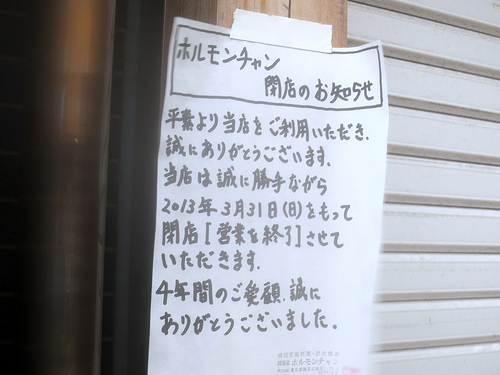 ホルモンチャン
閉店のお知らせ
平素より当店をご利用いただき、
誠にありがとうございます。
当店は誠に勝手ながら
2013年3月31日(日)をもって
閉店[営業を終了]させて
いただきます。
4年間のご愛顧、誠に
ありがとうございました。
ホルモンチャン